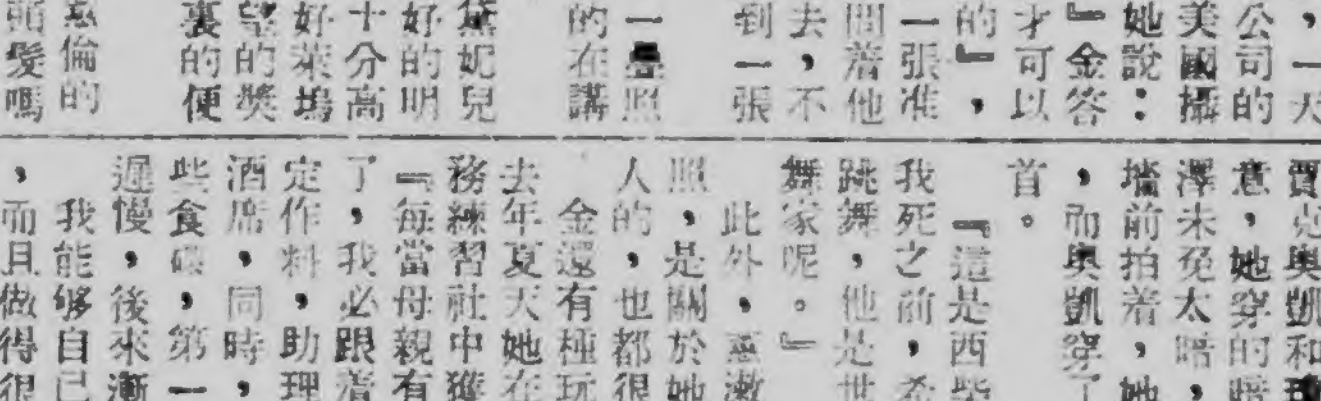 ，一天
公司的
美國攝
她說：
』金答
才可以
的』，
一張准
間着他
去，不
到一張
一疊照
的在講
黛妮兒
好的明
十分高
好萊塢
望的獎
裏的便
惠倫的
頭髮嗎
賈克奧凱和
意，她穿的暗
澤未免太暗，
墻前拍着，她
，而奧凱穿了
首。
『這是西
我死之前，希
跳舞，他是世
舞家呢。』
此外，
照，是關於她
人的，也都很
金還有極玩
去年夏天她在
務練習社中獲
『每當母親有
了，我必跟着
定作料，助理
酒席，同時，
些食，第一
遲慢，後來漸
我能够自己
，而且做得很